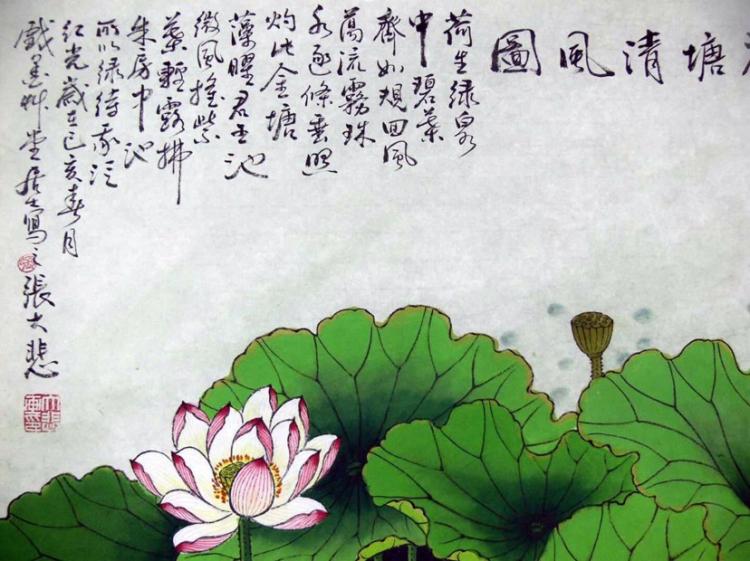 塘清風圖
荷生绿泉
中碧葉
齊如規回風
蕩流霧珠
水逐條垂照
灼此金塘
藻曜君王池
微風搖紫
葉輕露拂
朱房中池
所以绿待我泛
红光歲在已亥春月
戲墨艸堂居士寫之張大悲